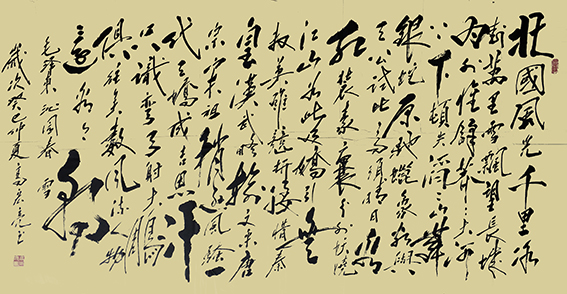 北國風光千里冰
封萬里雪飄望長城
内外惟餘莽莽大河
上下頓失滔滔山舞
銀蛇原馳蠟象欲與
天公試比高須晴日看
紅裝素裹分外妖嬈
江山如此多嬌引無
數英雄競折腰惜秦
皇漢武略輸文采唐
宗宋祖稍遜風騷一
代天驕成吉思汗
只識彎弓射大雕
俱往矣數風流人物
還看今朝
毛澤東沁園春雪
歲次癸巳仲夏